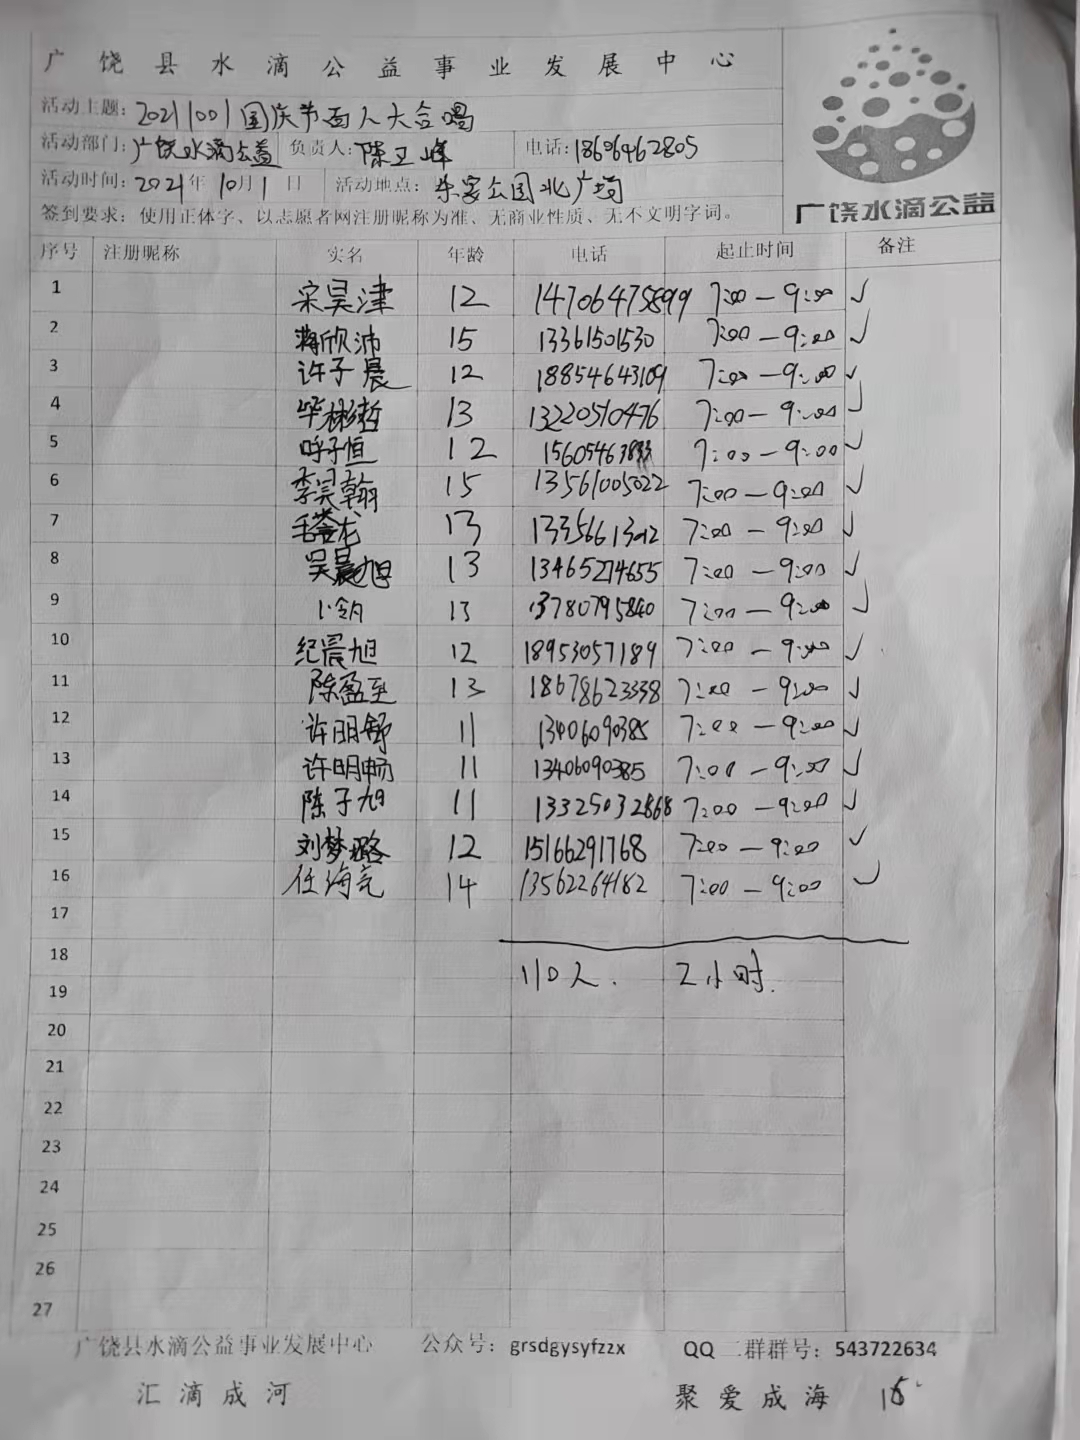 广饶县水滴公益事业发展中心
活动主题：20211001国庆节百人大合唱
活动部门：广饶水滴公益 负责人：陈卫峰 电话：18606462805
活动时间：2021年10月1日 活动地点：乐安公园北广场
签到要求：使用正体字、以志愿者网注册昵称为准、无商业性质、无不文明字词。
广饶水滴公益
序号 注册昵称 实名 年龄 电话 起止时间 备注
1 宋昊津 12 14706475899 7:00—9:00 √
2 蒋欣沛 15 13361501530 7:00—9:00 √
3 许子晨 12 18854643109 7:00—9:00 √
4 毕彬哲 13 13220510476 7:00—9:00 √
5 子恒 12 15605463833 7:00—9:00 √
6 李昊翰 15 13561005022 7:00—9:00 √
7 毛龙 13 13356613012 7:00—9:00 √
8 吴晨旭 13 13465274655 7:00—9:00 √
9 13 13780795840 7:00—9:00 √
10 纪晨旭 12 18953057189 7:00—9:00 √
11 陈盈至 13 18678623338 7:00—9:00 √
12 许明舒 11 13406090385 7:00—9:00 √
13 许明畅 11 13406090385 7:00—9:00 √
14 陈子旭 11 13325032868 7:00—9:00 √
15 刘梦璐 12 15166291768 7:00—9:00 √
16 任海亮 14 13562264182 7:00—9:00 √
17
18 110人. 2小时.
19
20
21
22
23
24
25
26
27
广饶县水滴公益事业发展中心 公众号：grsdgysyfzzx QQ二群群号：543722634
汇滴成河 聚爱成海 16